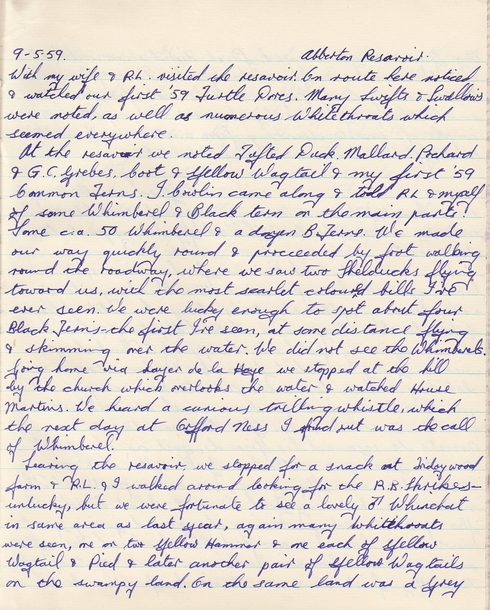 9-5-59. Abberton Resavoir.
With my wife & R.L. visited the resavoir. En route here noticed
& watched our first '59 Turtle Doves. Many Swifts & Swallows
were noted, as well as numerous Whitethroats which
seemed everywhere.
At the resavoir we noted Tufted Duck, Mallard, Pochard
& G.C. Grebes. Coot & Yellow Wagtail & my first '59
Common Terns. J. came along & told R.L & myself
of some Whimberel & Black tern on the main parts!
Some c.a. 50 Whimberel & a dozen B. Terns. We made
our way quickly round & procceeded by foot walking
round the roadway, where we saw two Shelducks flying
toward us, with the most scarlet coloured bills I've
ever seen. We were lucky enough to spot about four
Black Terns - the first I've seen, at some distance flying
& skimming over the water. We did not see the Whimberels.
Going home via Layer de la Haye we stopped at the hill
by the church which overlooks the water & watched House
Martins. We heard a curious trilling whistle, which
the next day at Orfford Ness I find out was the call
of Whimberel.
Leaving the resavoir, we stopped for a snack at wood
farm & R.L. & I walked around looking for the R.B. Shrikes -
unlucky, but we were fortunate to see a lovely ♂ Whinchat
in same area as last year, again many Whitethroats
were seen, one or two Yellow Hammer & one each of Yellow
Wagtail & Pied & later another pair of Yellow Wagtails
on the swampy land. On the same land was a Grey